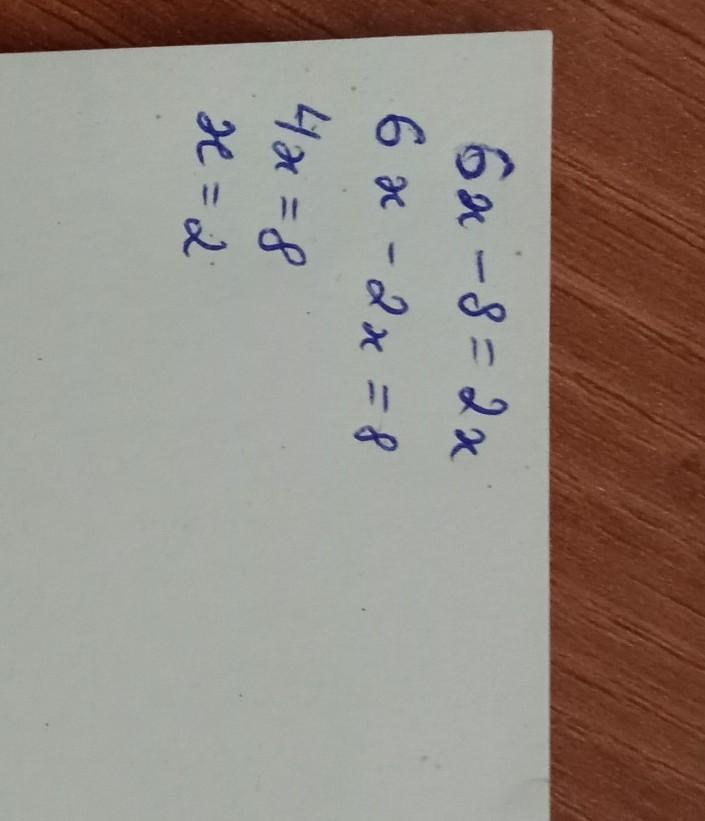 6x - 8 = 2x
6x - 2x = 8
4x = 8
x = 2